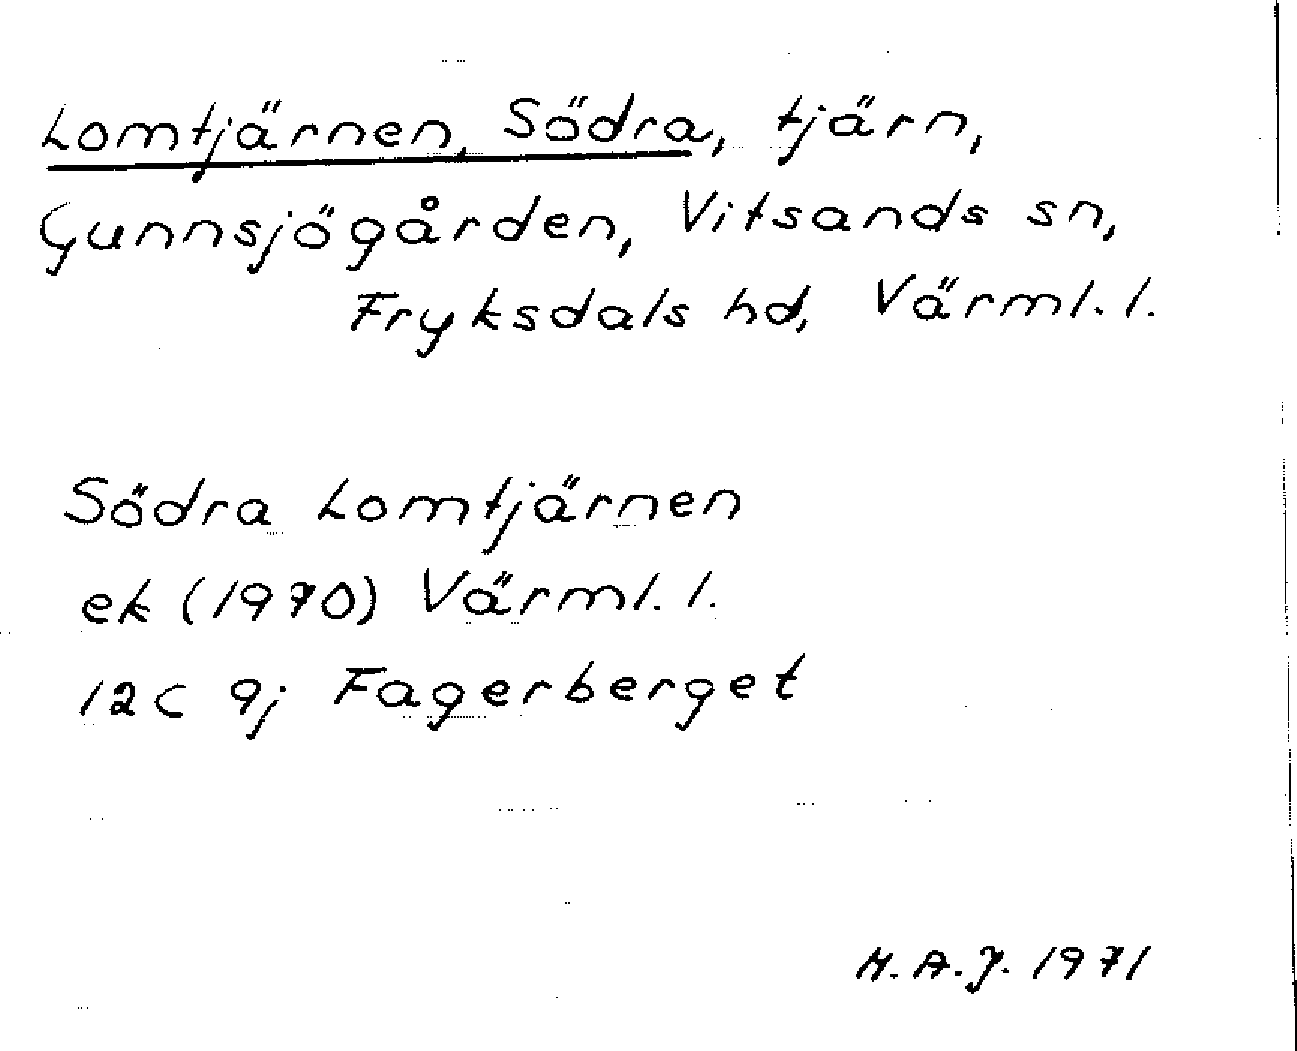 Lomtjärnen, Södra, tjärn,
Gunnsjögården, Vitsands sn,
Fryksdals hd, Värml. l.
Södra Lomtjärnen
ek (1970) Värml. l.
12C 9j Fagerberget
H.A.J. 1971